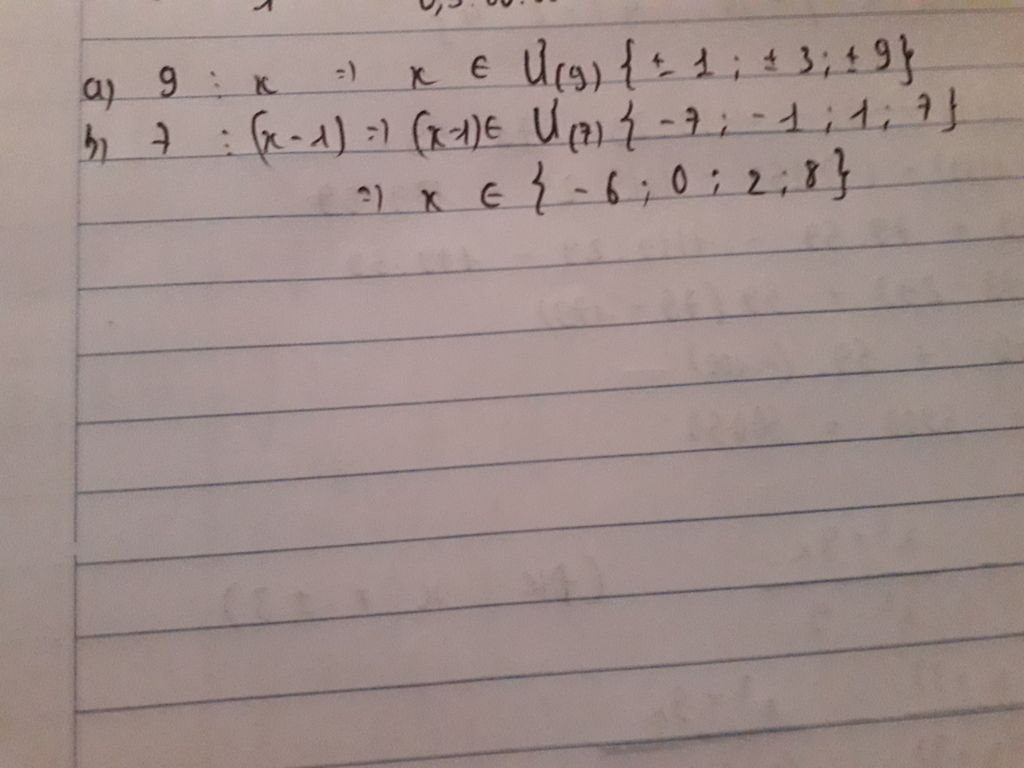 a) 9 ⋮ x => x ∈ Ư(9) {± 1 ; ± 3 ; ± 9}
b) 7 ⋮ (x - 1) => (x-1) ∈ Ư(7) { - 7 ; - 1 ; 1 ; 7 }
=> x ∈ { - 6 ; 0 ; 2 ; 8 }